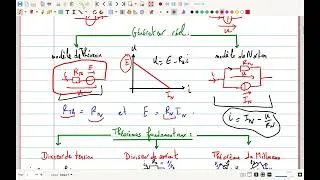 Générateur réel:
modèle de Thévenin
modèle de Norton
u
E
u = E - R_Th i
R_Th
E
R_N
I_N
i
I_N
i = I_N - u/R_N
R_Th = R_N et E = R_N I_N
Théorèmes fondamentaux:
Diviseur de tension
Diviseur de courant
Théorème de Millman